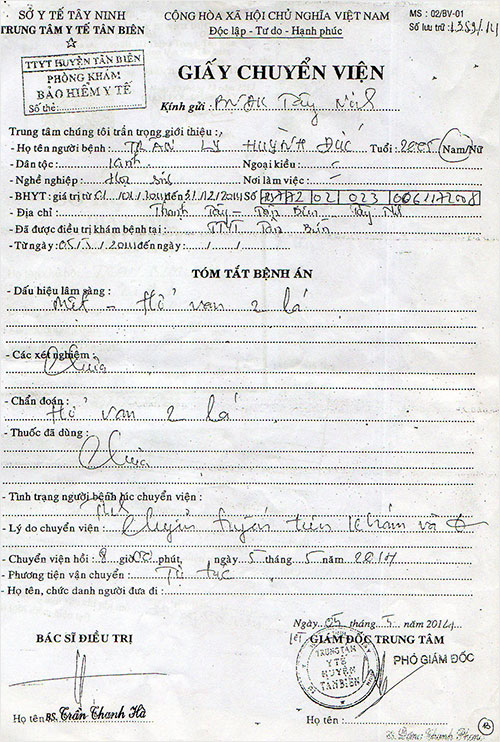 SỞ Y TẾ TÂY NINH
TRUNG TÂM Y TẾ TÂN BIÊN
CỘNG HÒA XÃ HỘI CHỦ NGHĨA VIỆT NAM
Độc lập - Tự do - Hạnh phúc
MS : 02/BV-01
Số lưu trữ :
TTYT HUYỆN TÂN BIÊN
PHÒNG KHÁM
BẢO HIỂM Y TẾ
Số thẻ:
GIẤY CHUYỂN VIỆN
Kính gửi : BVĐK Tây Ninh
Trung tâm chúng tôi trân trọng giới thiệu :
- Họ tên người bệnh : TRẦN LÝ HUỲNH ĐỨC Tuổi : 2005 Nam/Nữ
- Dân tộc : kinh Ngoại kiều : -
- Nghề nghiệp : Học sinh Nơi làm việc : -
- BHYT : giá trị từ đến 31/12/2014 Số 02 023
- Địa chỉ : Thạnh Tây - Tân Biên - Tây Ninh
- Đã được điều trị khám bệnh tại : TTYT Tân Biên
- Từ ngày : 05/5/2014 đến ngày : / /
TÓM TẮT BỆNH ÁN
- Dấu hiệu lâm sàng :
mệt - Hở van 2 lá
- Các xét nghiệm :
Chưa
- Chẩn đoán :
Hở van 2 lá
- Thuốc đã dùng :
Chưa
- Tình trạng người bệnh lúc chuyển viện :
- Lý do chuyển viện : Chuyển tuyến trên khám và
- Chuyển viện hồi : 8 giờ 00 phút, ngày 5 tháng 5 năm 2014
- Phương tiện vận chuyển : Tự túc
- Họ tên, chức danh người đưa đi :
Ngày 05 tháng 5 năm 2014
BÁC SĨ ĐIỀU TRỊ
GIÁM ĐỐC TRUNG TÂM
TRUNG TÂM
Y TẾ
HUYỆN
TÂN BIÊN
PHÓ GIÁM ĐỐC
Họ tên BS. Trần Thanh Hà
Họ tên :